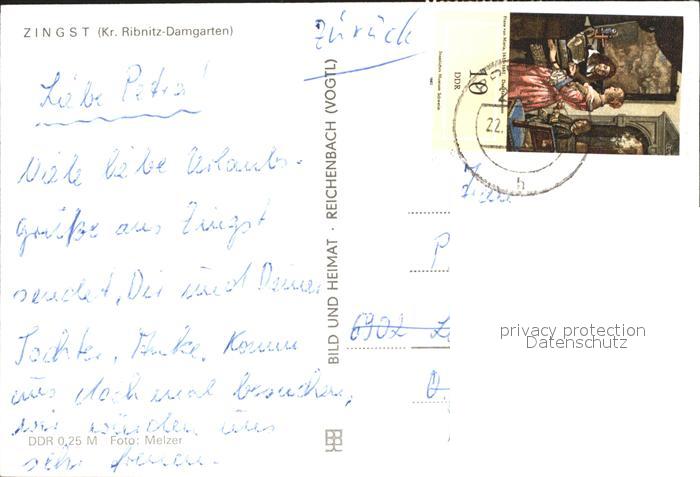 ZINGST (Kr. Ribnitz-Damgarten)
Liebe Petra!
Viele liebe Urlaubs-
grüße aus Zingst
sendet Dir und Deiner
Tochter, Anke. Komm
uns doch mal besuchen,
wir würden uns
sehr freuen.
DDR 0,25 M Foto: Melzer
BILD UND HEIMAT · REICHENBACH (VOGTL)
Zurück
10
DDR
22.
h
P
6902
privacy protection
Datenschutz